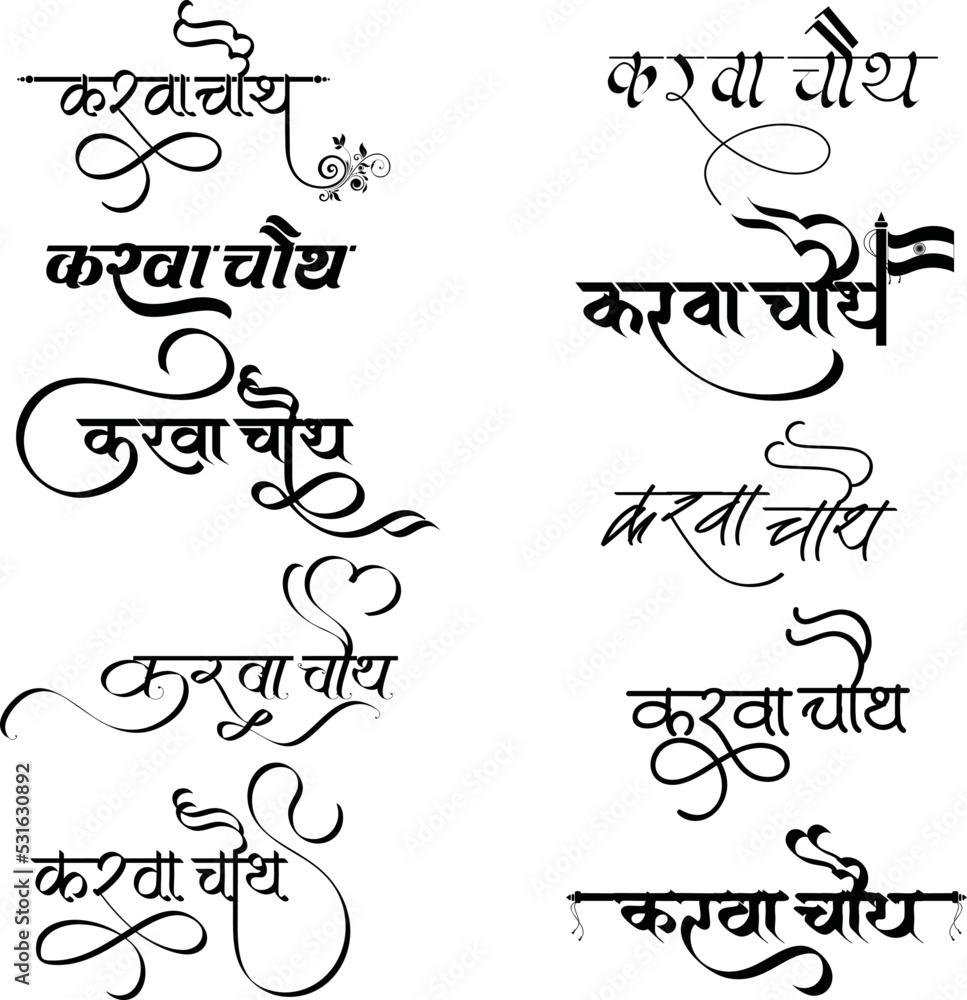 करवा चौथ
करवा चौथ
करवा चौथ
करवा चौथ
करवा चौथ
करवा चौथ
करवा चौथ
करवा चौथ
करवा चौथ
करवा चौथ
Adobe Stock | #531630892